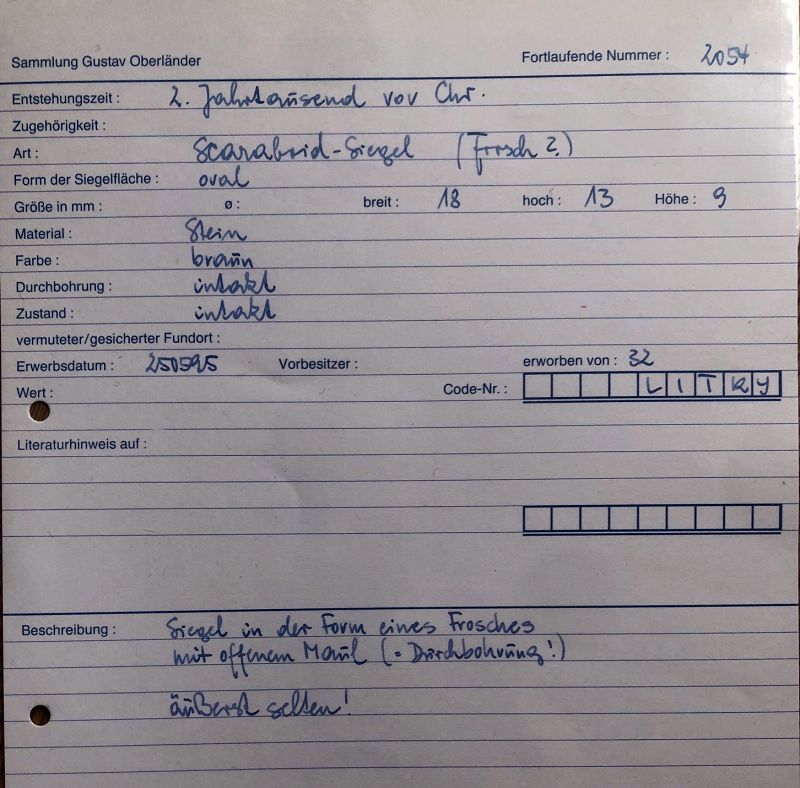 Sammlung Gustav Oberländer Fortlaufende Nummer : 2054
Entstehungszeit : 2. Jahrtausend vor Chr.
Zugehörigkeit :
Art : Scaraboid-Siegel (Frosch ?)
Form der Siegelfläche : oval
Größe in mm : ø : breit : 18 hoch : 13 Höhe : 9
Material : Stein
Farbe : braun
Durchbohrung : intakt
Zustand : intakt
vermuteter/gesicherter Fundort :
Erwerbsdatum : 250595 Vorbesitzer : erworben von : 32
Wert : Code-Nr. : LITKY
Literaturhinweis auf :
Beschreibung : Siegel in der Form eines Frosches
mit offenem Maul (= Durchbohrung!)
äußerst selten!